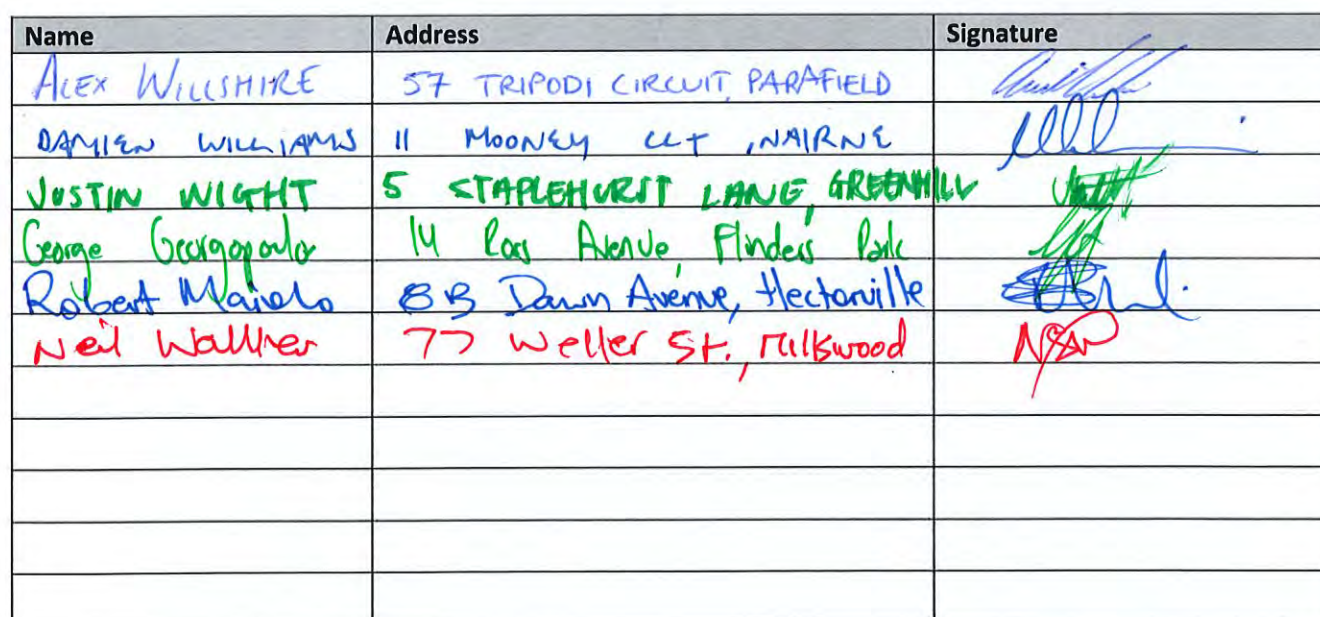 Name Address Signature
ALEX WILLSHIRE 57 TRIPODI CIRCUIT, PARAFIELD
DAMIEN WILLIAMS 11 MOONEY CCT, NAIRNE
JUSTIN WIGHT 5 STAPLEHURST LANE, GREENHILL
George Georgopoulos 14 Ross Avenue, Flinders Park
Robert Maiolo 8B Dawn Avenue, Hectorville
Neil Wallner 77 Weller St., Millswood